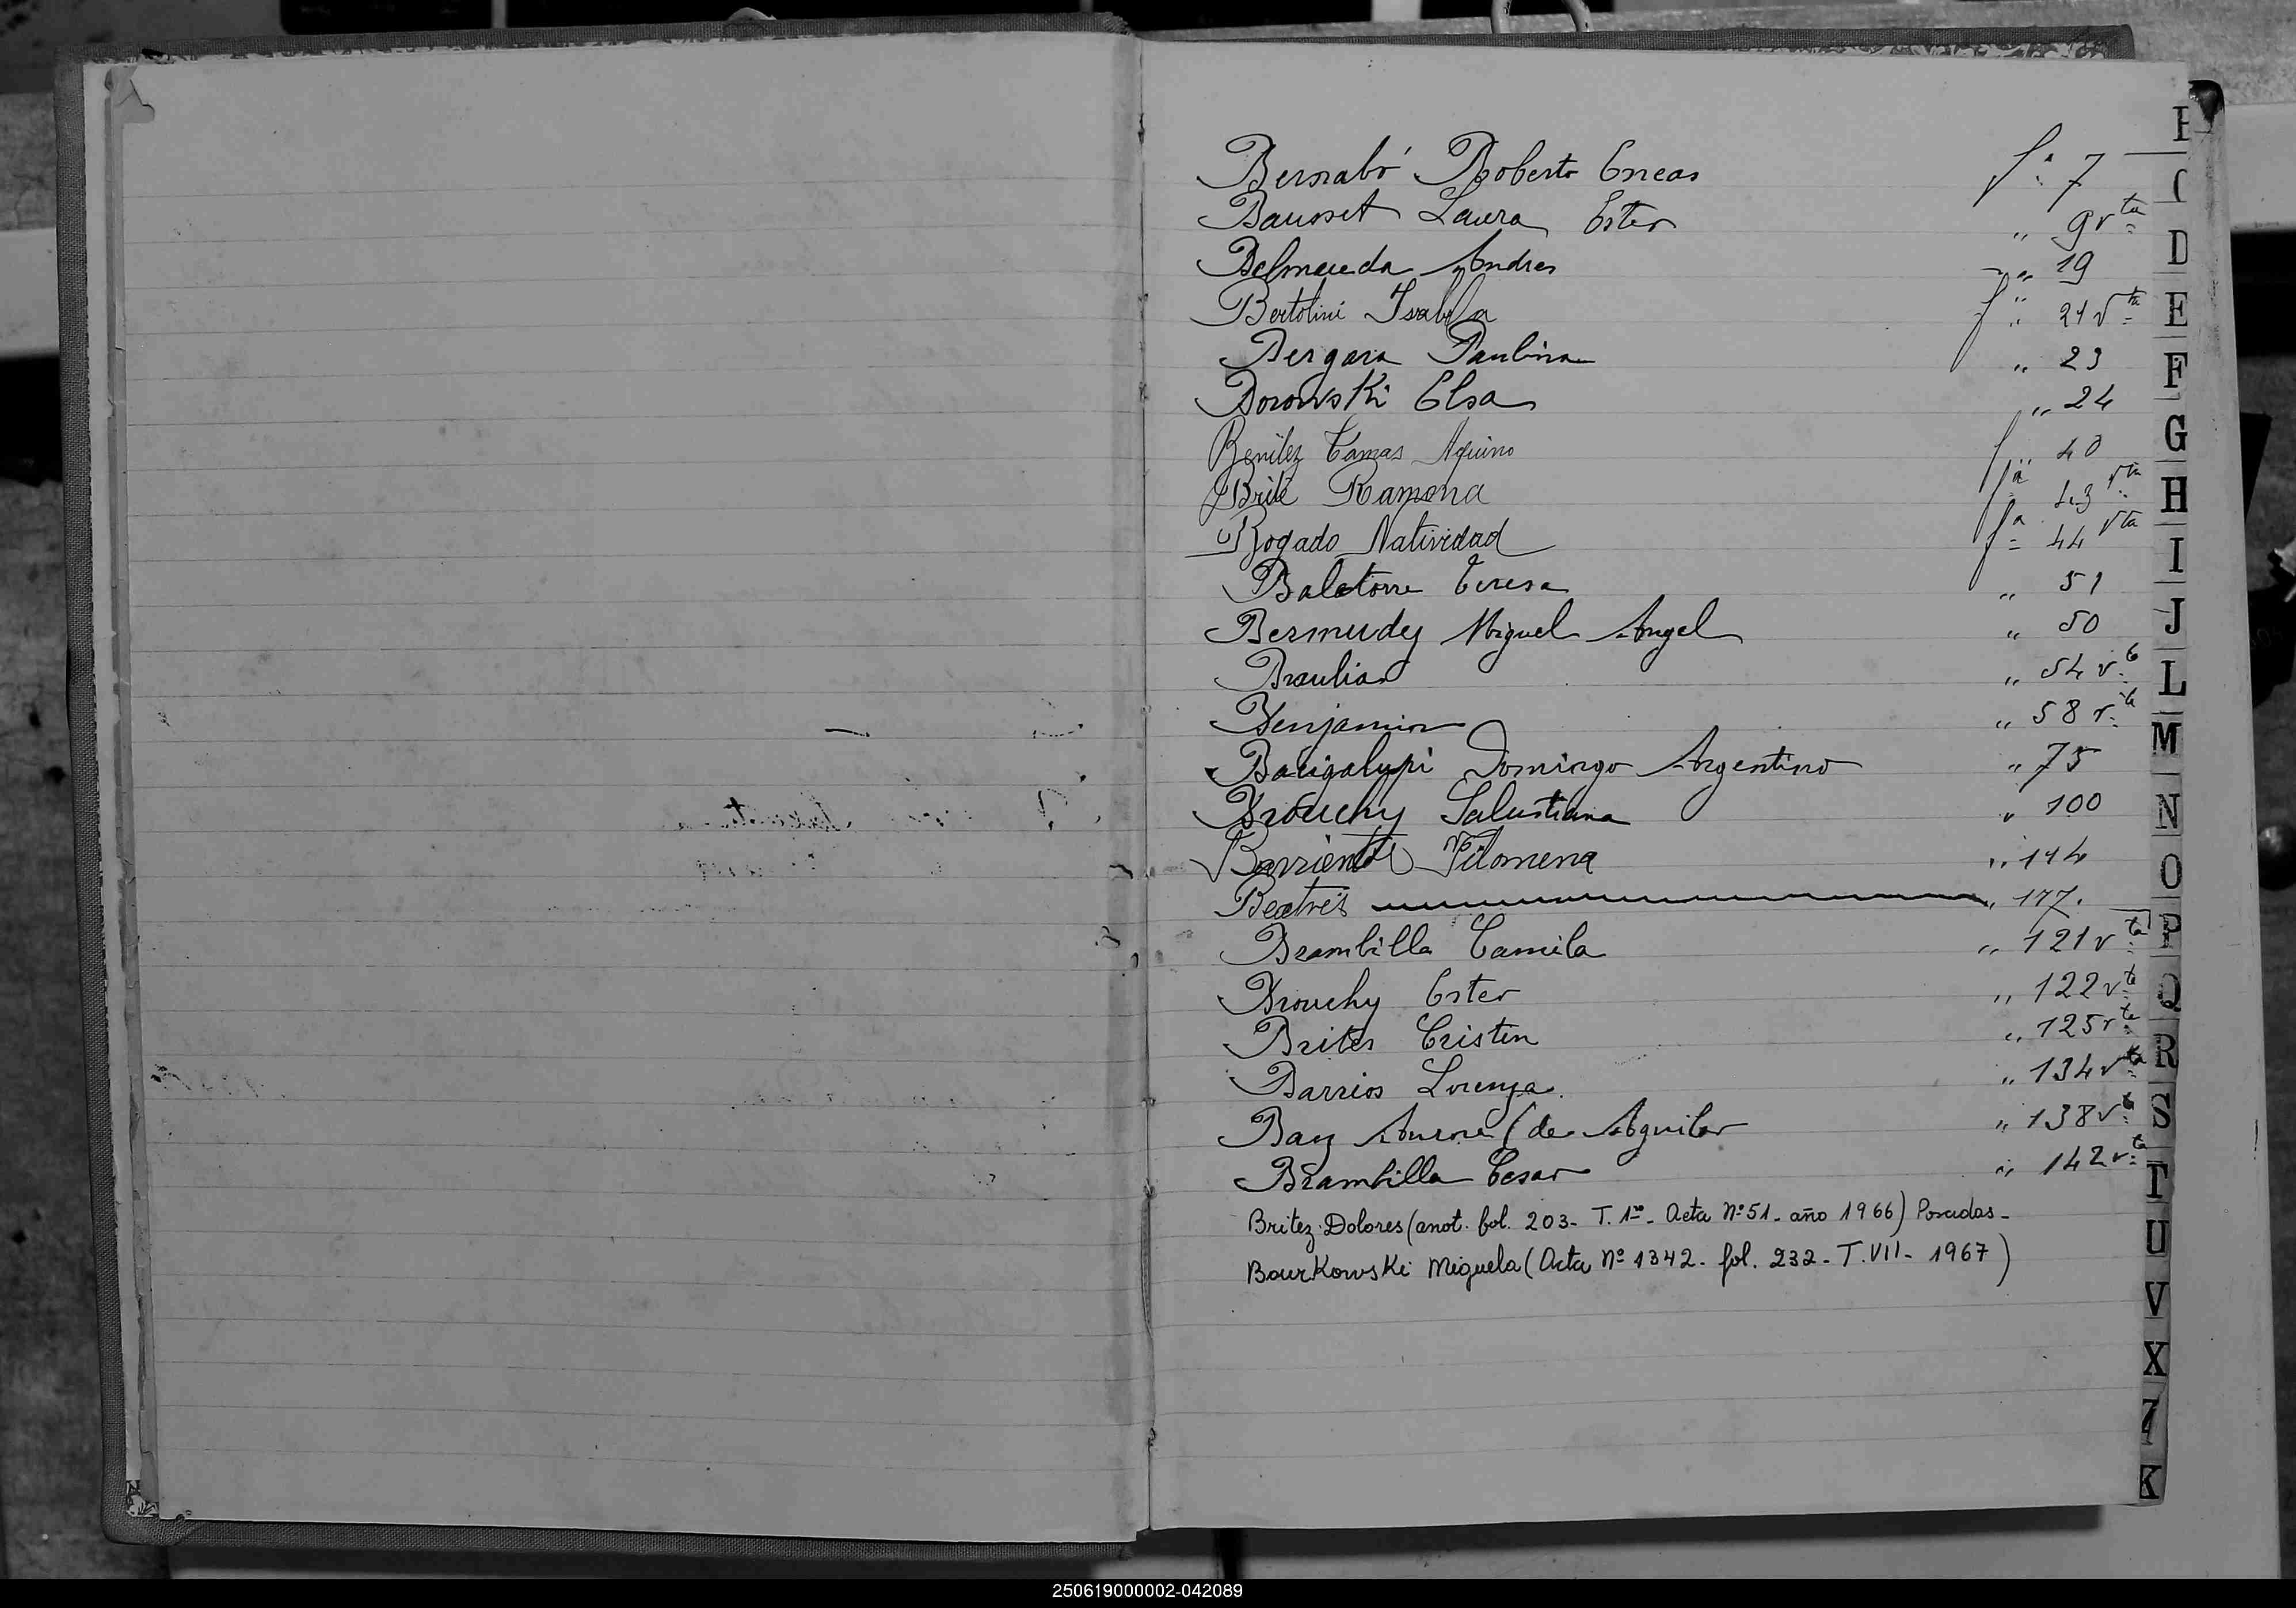 Bernabó Roberto Eneas fª 7
Bausset Laura Ester " 9 vta
Belmeuda Andres " 19
Bertolini Isabela " 21 vta
Bergara Paulina " 23
Borowski Elsa " 24
Benitez Tomas Aquino " 40
Brite Ramona fª 43 vta
Bogado Natividad fª 44 vta
Balatorre Teresa " 51
Bermudez Miguel Angel " 50
Braulia " 54 vta
Benjamin " 58 vta
Bacigalupi Domingo Argentino " 75
Brouchy Salustiana " 100
Barriento Filomena " 114
Beatris " 117.
Brambilla Camila " 121 vta
Brouchy Ester " 122 vta
Brites Cristin " 125 vta
Barrios Lorenza. " 134 vta
Baez Aurora (de Aguilar " 138 vta
Brambilla Cesar " 142 vta
Britez Dolores (anot. fol. 203- T. 1ro- Acta Nº 51- año 1966) Posadas-
Bourkowski Miguela (Acta Nº 1342- fol. 232- T. VII- 1967)
C
D
E
F
G
H
I
J
L
M
N
O
P
Q
R
S
T
U
V
X
Z
K
250619000002-042089